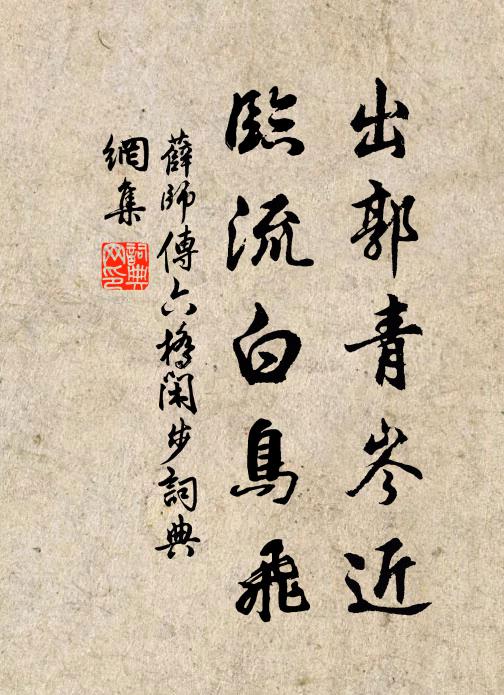 出郭青岑近
臨流白鳥飛
薛師傳六橋閑步詞典
網集
詞典網印